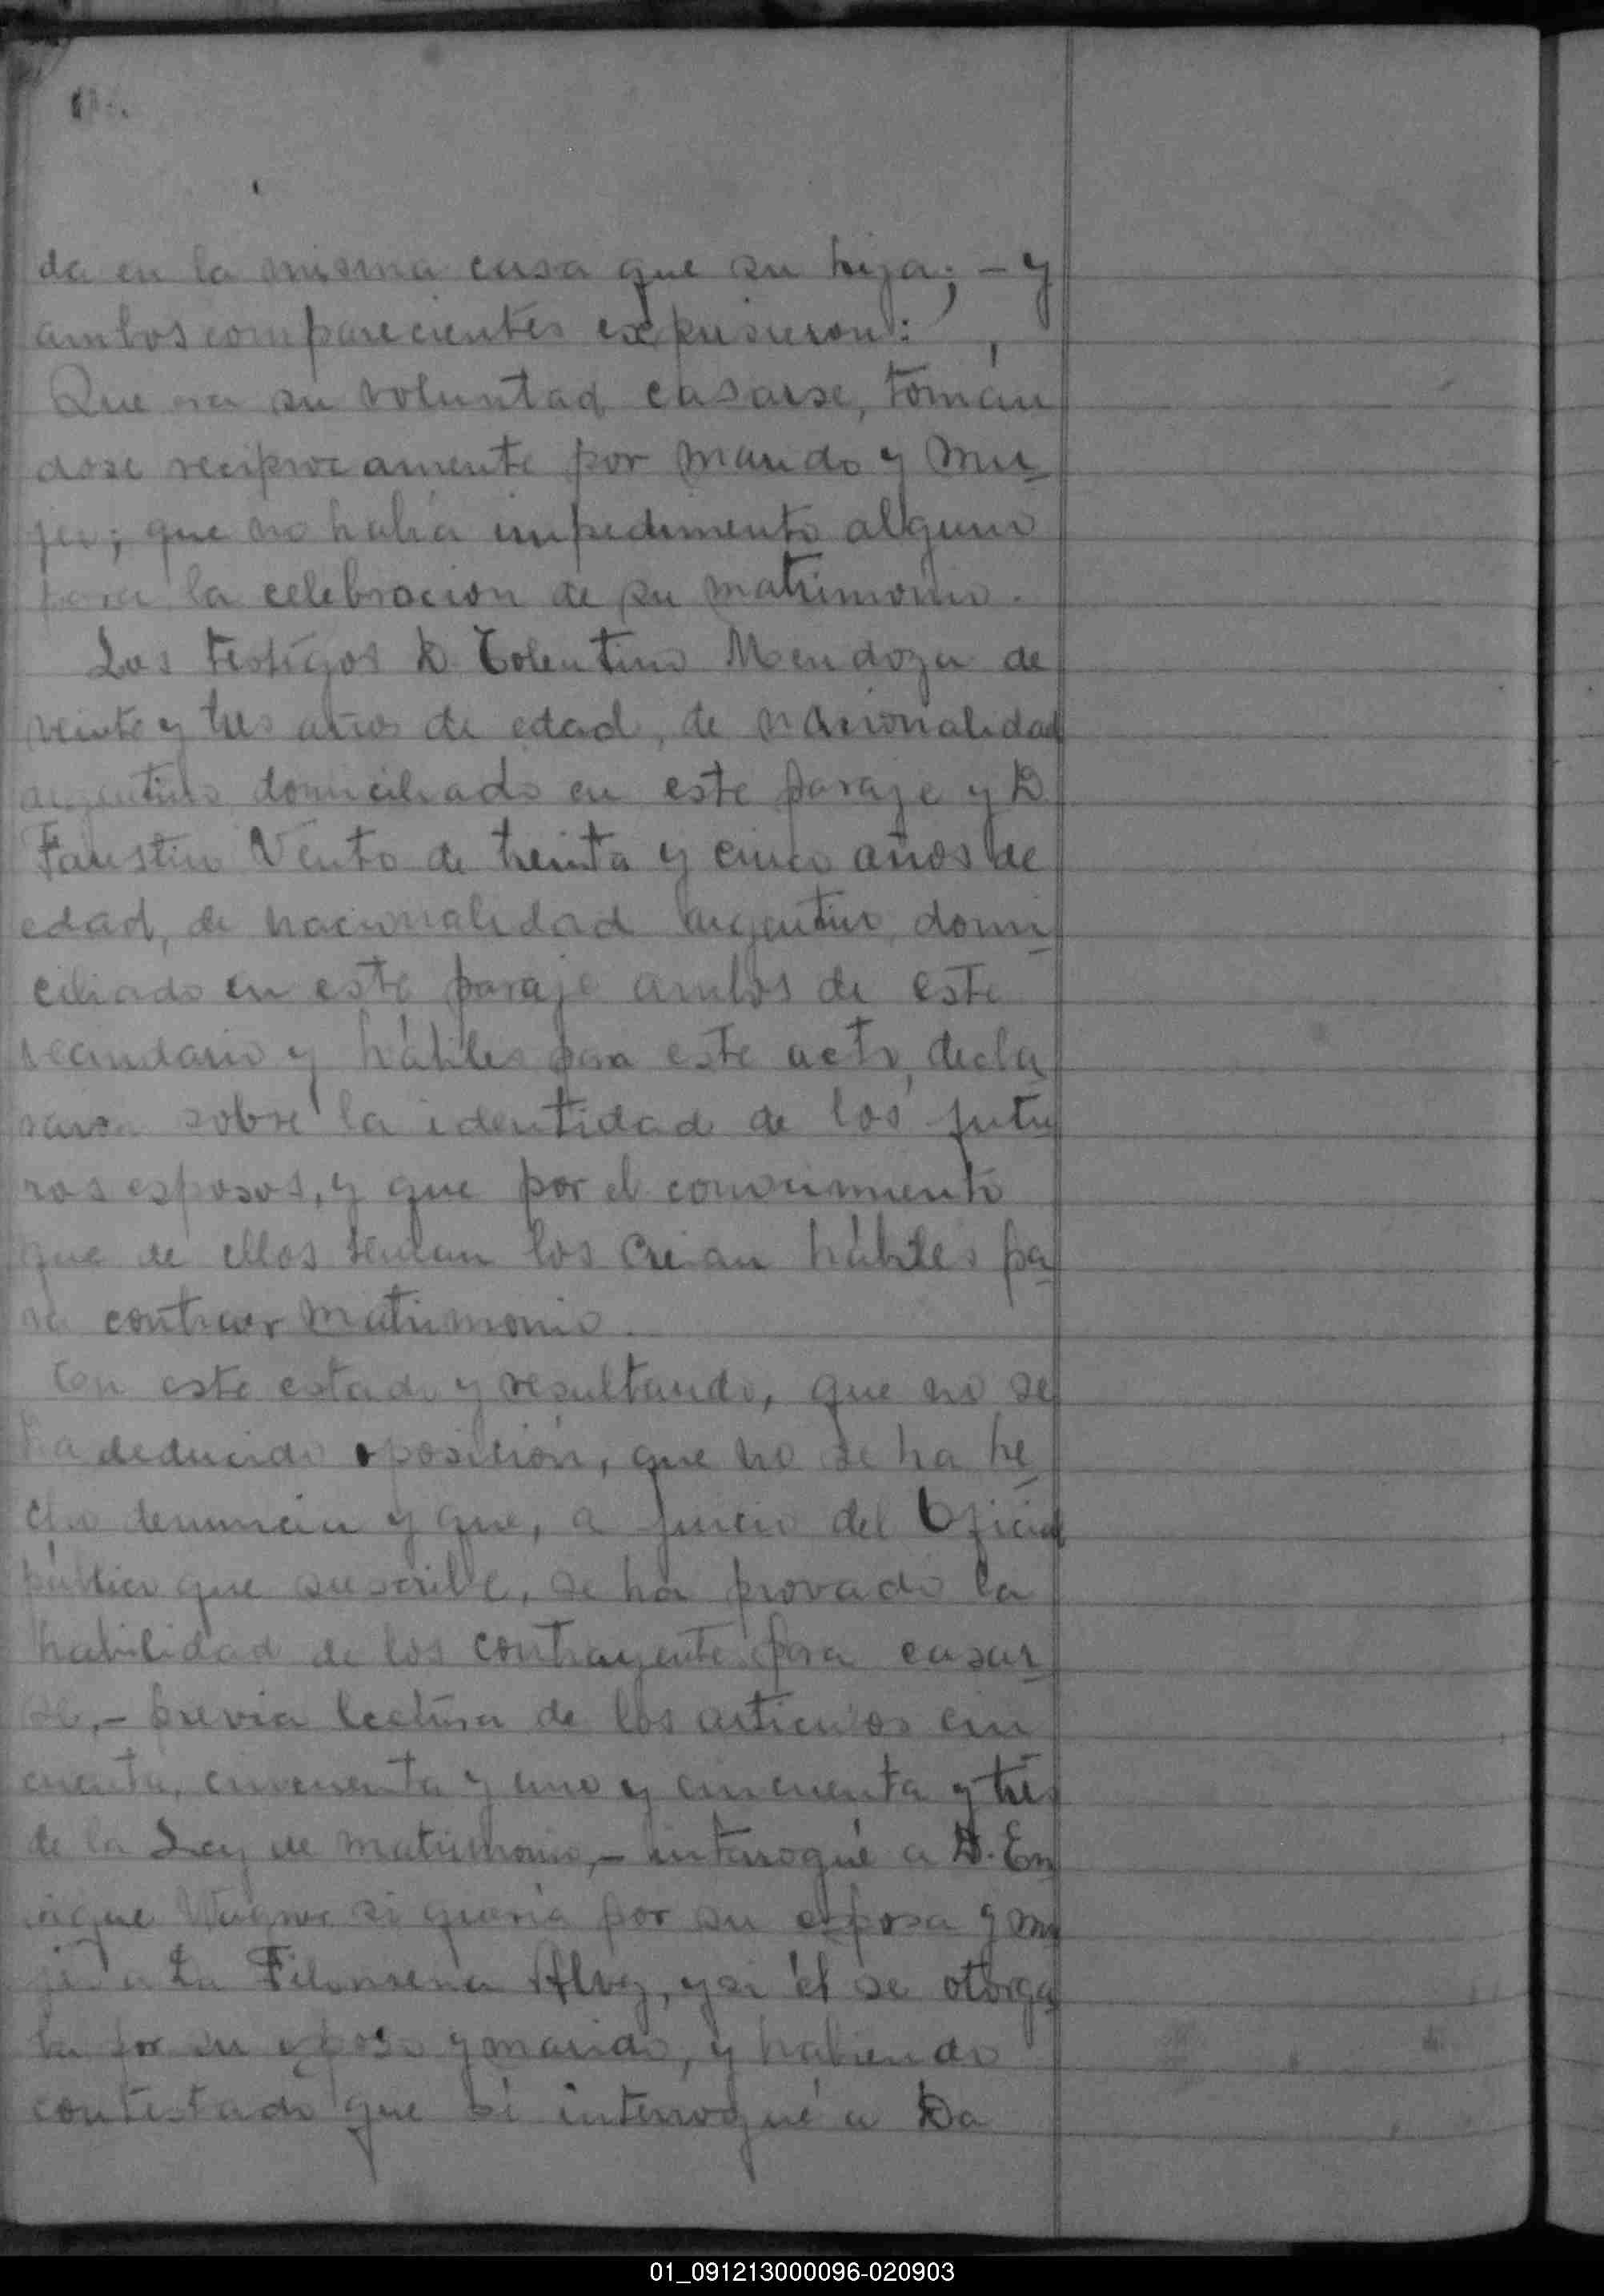 da en la misma casa que su hija; – y
ambos comparecientes expusieron:
Que era su voluntad casarse, tomán
dose reciprocamente por marido y mu-
jer; que no había impedimento alguno
para la celebracion de su matrimonio.
Los testigos D. Tolentino Mendoza de
veinte y tres años de edad, de nacionalidad
argentino domiciliado en este paraje y D.
Faustino Vento de treinta y cinco años de
edad, de nacionalidad argentino, domi-
ciliado en este paraje ambos de este
vecindario y hábiles para este acto, decla
raron sobre la identidad de los futu
ros esposos, y que por el conocimiento
que de ellos tenian los creian hábiles pa-
ra contraer matrimonio.
En este estado y resultando, que no se
ha deducido oposición, que no se ha he-
cho denuncia y que, a juicio del Oficial
público que suscribe, se ha provado la
habilidad de los contrayentes para casar-
se, – previa lectura de los articulos cin
cuenta, cincuenta y uno y cincuenta y tres
de la Ley de matrimonio, – interrogué a D. En
rique Wagner si queria por su esposa y mu
jer a Da Filomena Alvez, y si él se otorga
ba por su esposo y marido, y habiendo
contestado que sí interrogué a Da
01_091213000096-020903